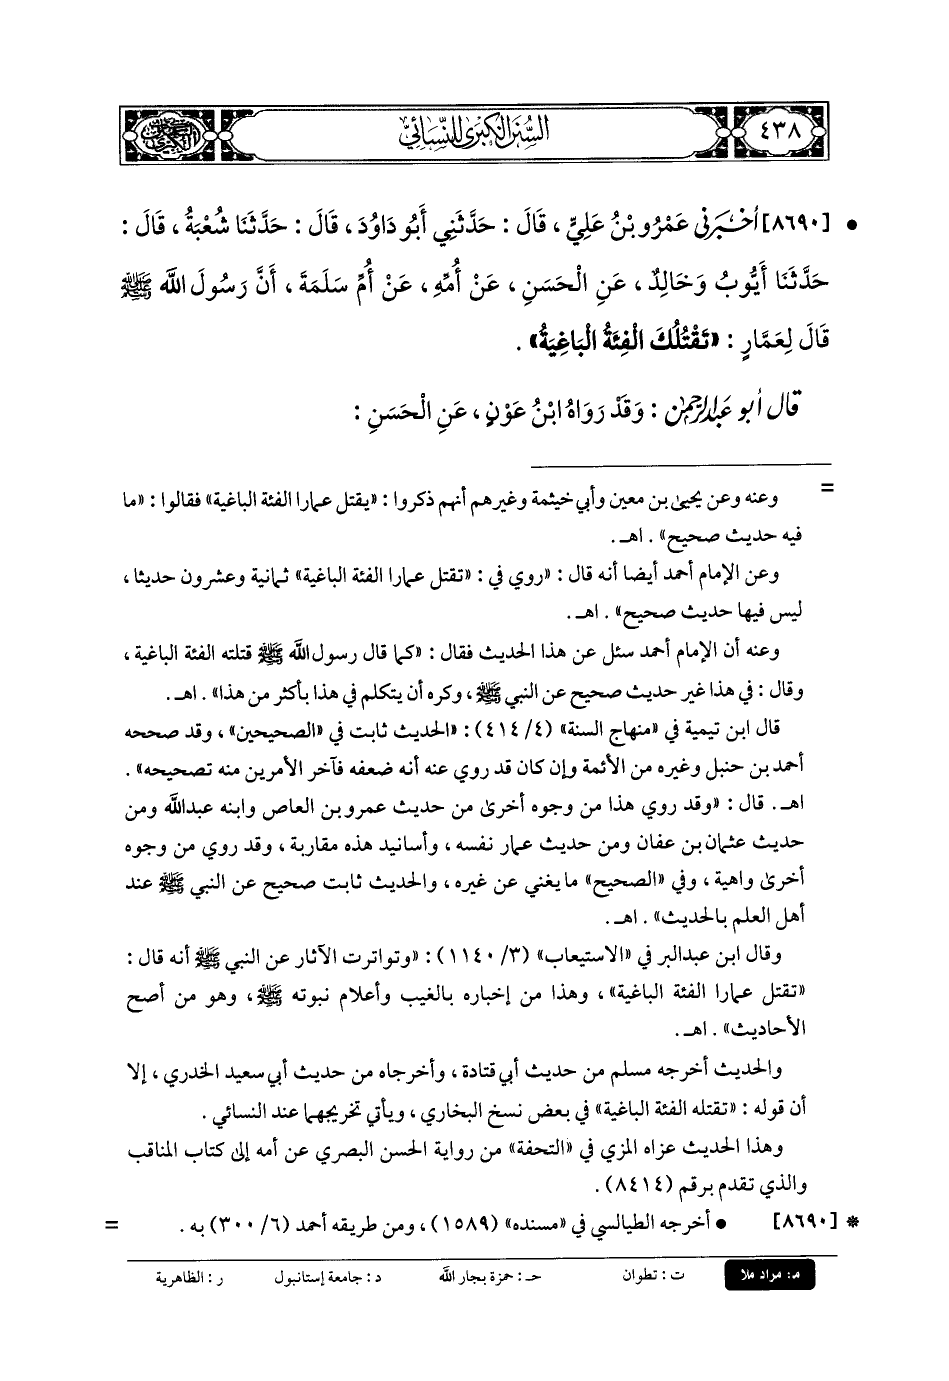 ٤٣٨
السُّنَن الكبرى للنسائي
• [٨٦٩٠] أَخْبَرَنِي عَمْرُو بْنُ عَلِيٍّ ، قَالَ : حَدَّثَنِي أَبُو دَاوُدَ ، قَالَ : حَدَّثَنَا شُعْبَةُ ، قَالَ :
حَدَّثَنَا أَيُّوبُ وَخَالِدٌ ، عَنِ الْحَسَنِ ، عَنْ أُمِّهِ ، عَنْ أُمِّ سَلَمَةَ ، أَنَّ رَسُولَ اللَّه ﷺ
قَالَ لِعَمَّارٍ : «تَقْتُلُكَ الْفِئَةُ الْبَاغِيَةُ» .
قال أبو عبد الرحمن : وَقَدْ رَوَاهُ ابْنُ عَوْنٍ ، عَنِ الْحَسَنِ :
= وعنه وعن يحيى بن معين وأبي خيثمة وغيرهم أنهم ذكروا : «يقتل عمارا الفئة الباغية» فقالوا : «ما
فيه حديث صحيح» . اهـ .
وعن الإمام أحمد أيضا أنه قال : «روي في : «تقتل عمارا الفئة الباغية» ثمانية وعشرون حديثا ،
ليس فيها حديث صحيح» . اهـ .
وعنه أن الإمام أحمد سئل عن هذا الحديث فقال : «كما قال رسول اللَّه ﷺ قتلته الفئة الباغية ،
وقال : في هذا غير حديث صحيح عن النبي ﷺ ، وكره أن يتكلم في هذا بأكثر من هذا» . اهـ .
قال ابن تيمية في «منهاج السنة» (٤/ ٤١٤) : «الحديث ثابت في «الصحيحين» ، وقد صححه
أحمد بن حنبل وغيره من الأئمة وإن كان قد روي عنه أنه ضعفه فآخر الأمرين منه تصحيحه» .
اهـ . قال : «وقد روي هذا من وجوه أخرى من حديث عمرو بن العاص وابنه عبدالله ومن
حديث عثمان بن عفان ومن حديث عمار نفسه ، وأسانيد هذه مقاربة ، وقد روي من وجوه
أخرى واهية ، وفي «الصحيح» ما يغني عن غيره ، والحديث ثابت صحيح عن النبي ﷺ عند
أهل العلم بالحديث» . اهـ .
وقال ابن عبدالبر في «الاستيعاب» (٣/ ١١٤٠) : «وتواترت الآثار عن النبي ﷺ أنه قال :
«تقتل عمارا الفئة الباغية» ، وهذا من إخباره بالغيب وأعلام نبوته ﷺ ، وهو من أصح
الأحاديث» . اهـ .
والحديث أخرجه مسلم من حديث أبي قتادة ، وأخرجاه من حديث أبي سعيد الخدري ، إلا
أن قوله : «تقتله الفئة الباغية» في بعض نسخ البخاري ، ويأتي تخريجهما عند النسائي .
وهذا الحديث عزاه المزي في «التحفة» من رواية الحسن البصري عن أمه إلى كتاب المناقب
والذي تقدم برقم (٨٤١٤) .
* [٨٦٩٠] • أخرجه الطيالسي في «مسنده» (١٥٨٩) ، ومن طريقه أحمد (٦/ ٣٠٠) به . =
م: مراد ملا ت : تطوان حـ : حمزة بجار اللَّه د : جامعة إستانبول ر : الظاهرية